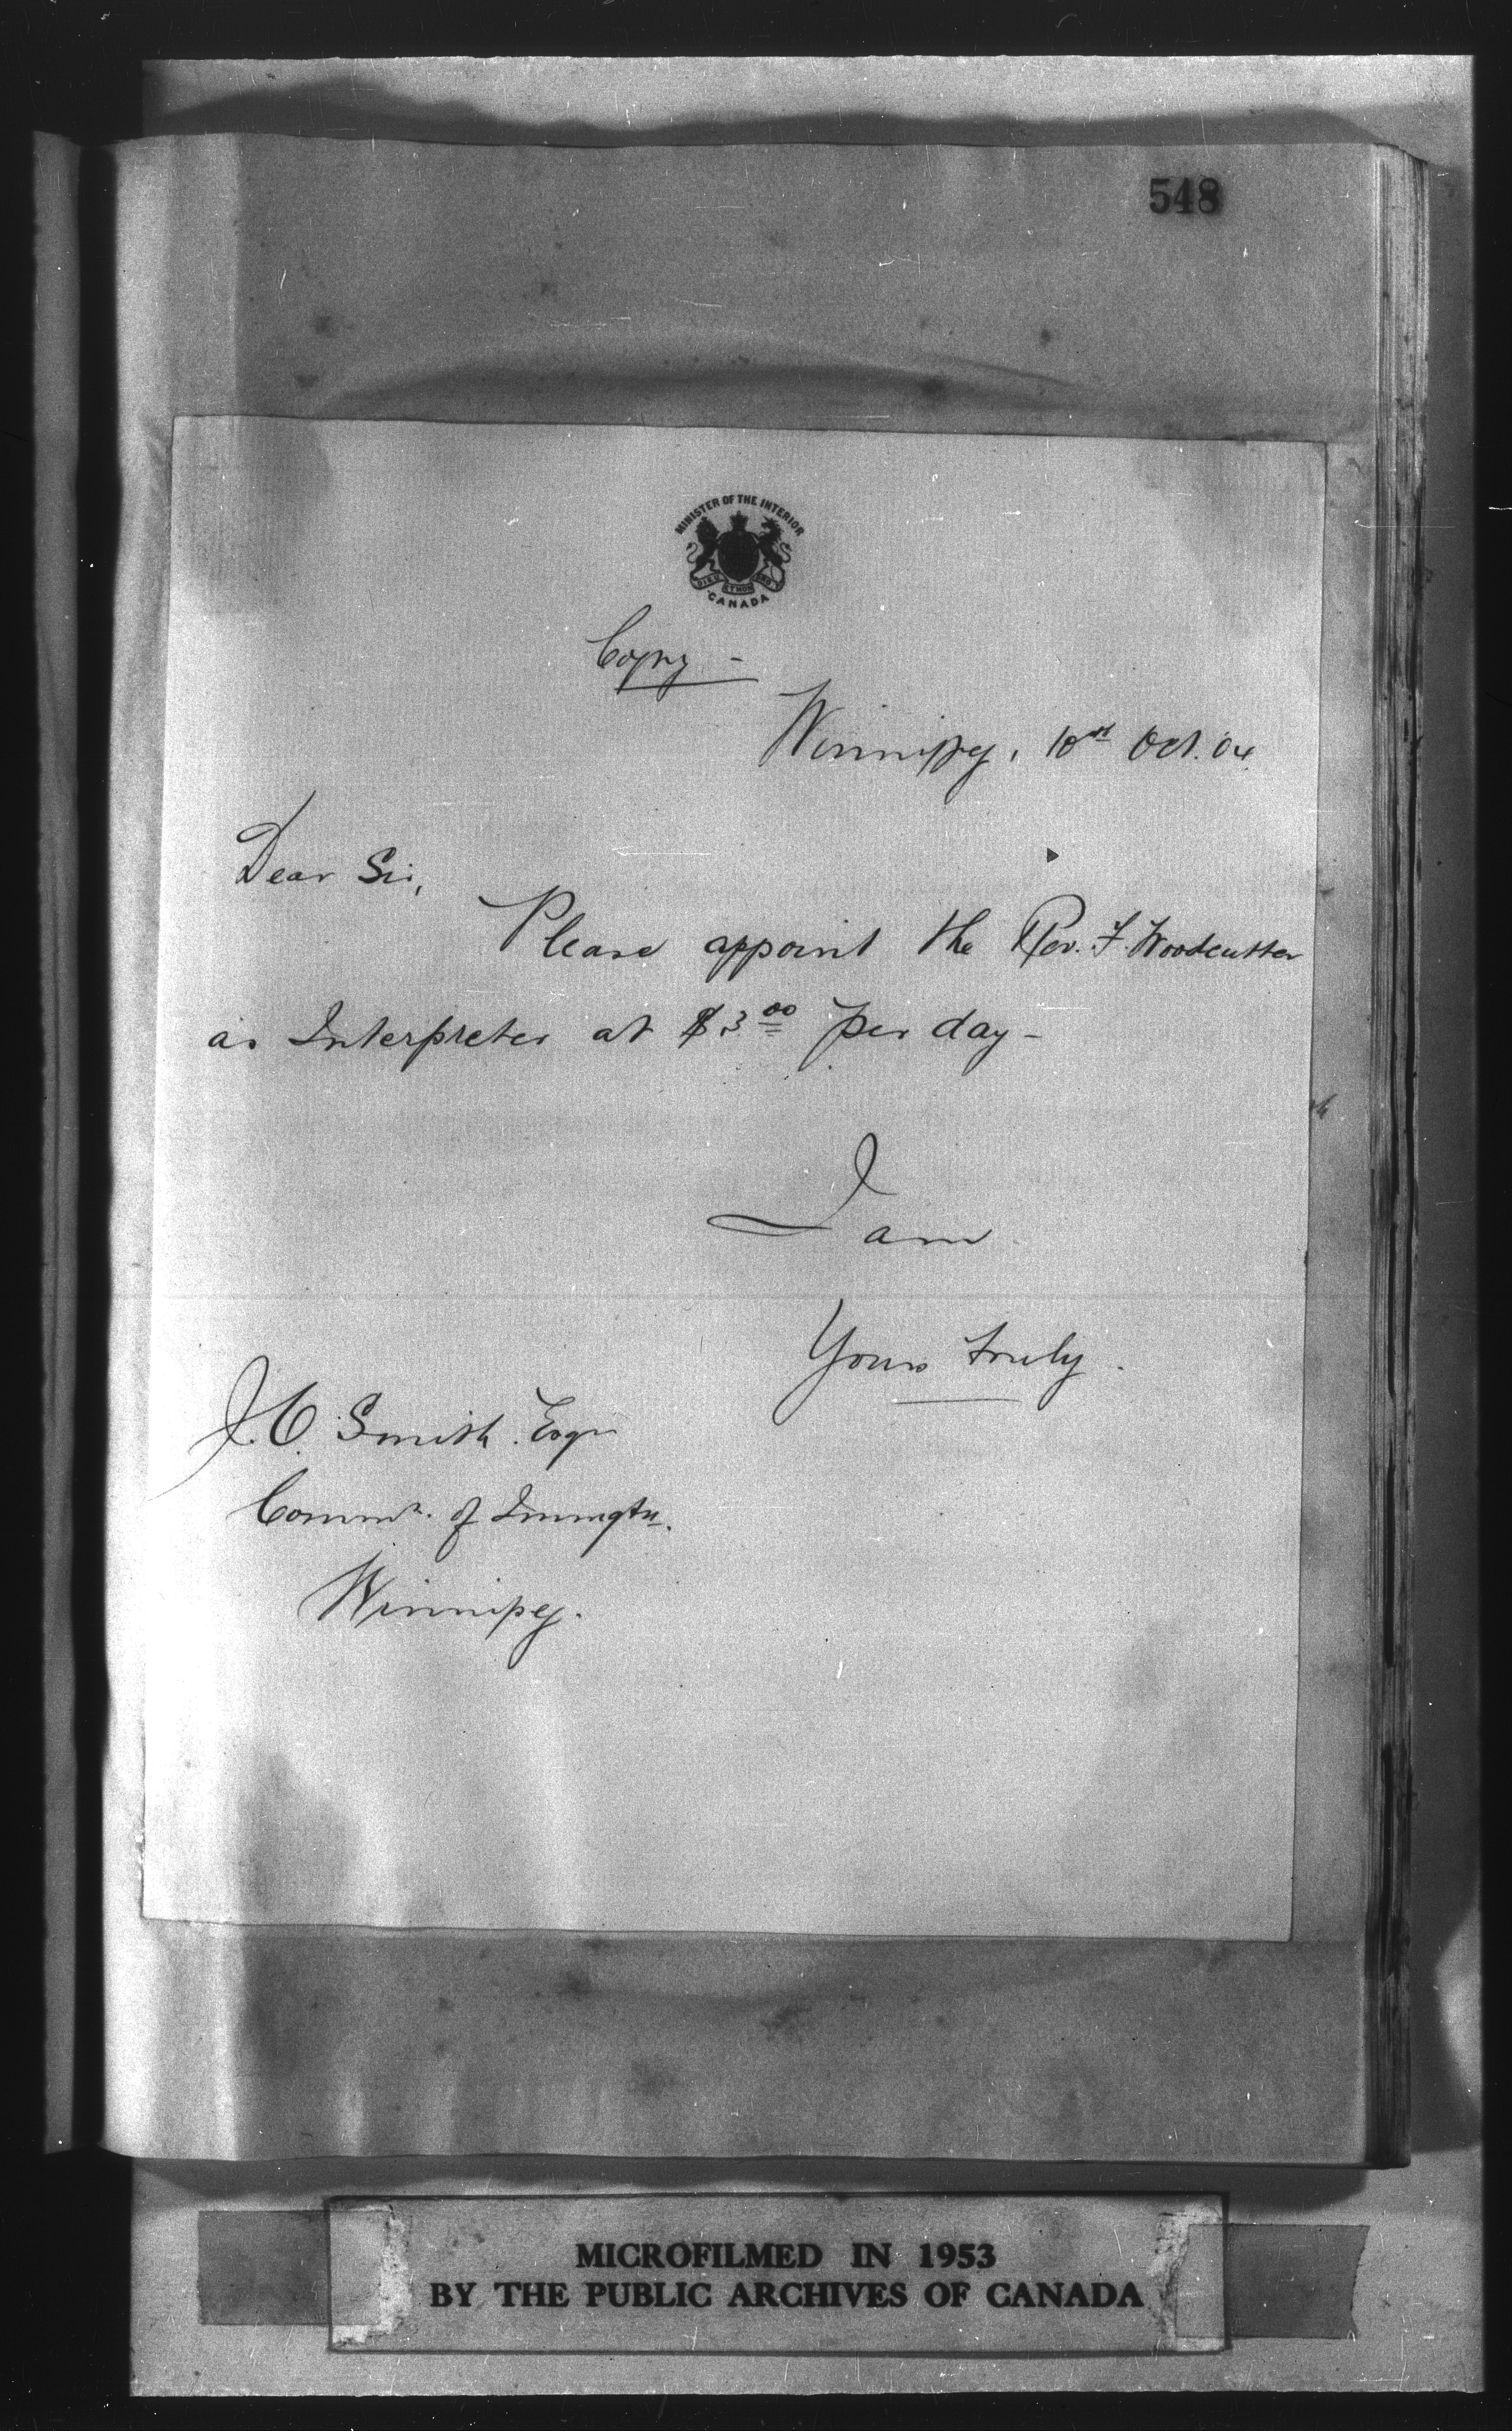 548
MINISTER OF THE INTERIOR
DIEU ET MON
CANADA
Copy -
Winnipeg, 10th Oct. 04.
Dear Sir,
Please appoint the Rev. F. Woodcutter
as Interpreter at $3.00 per day -
I am
Yours truly.
J. O. Smith. Esqr
Commr. of Immgtn.
Winnipeg.
MICROFILMED IN 1953
BY THE PUBLIC ARCHIVES OF CANADA